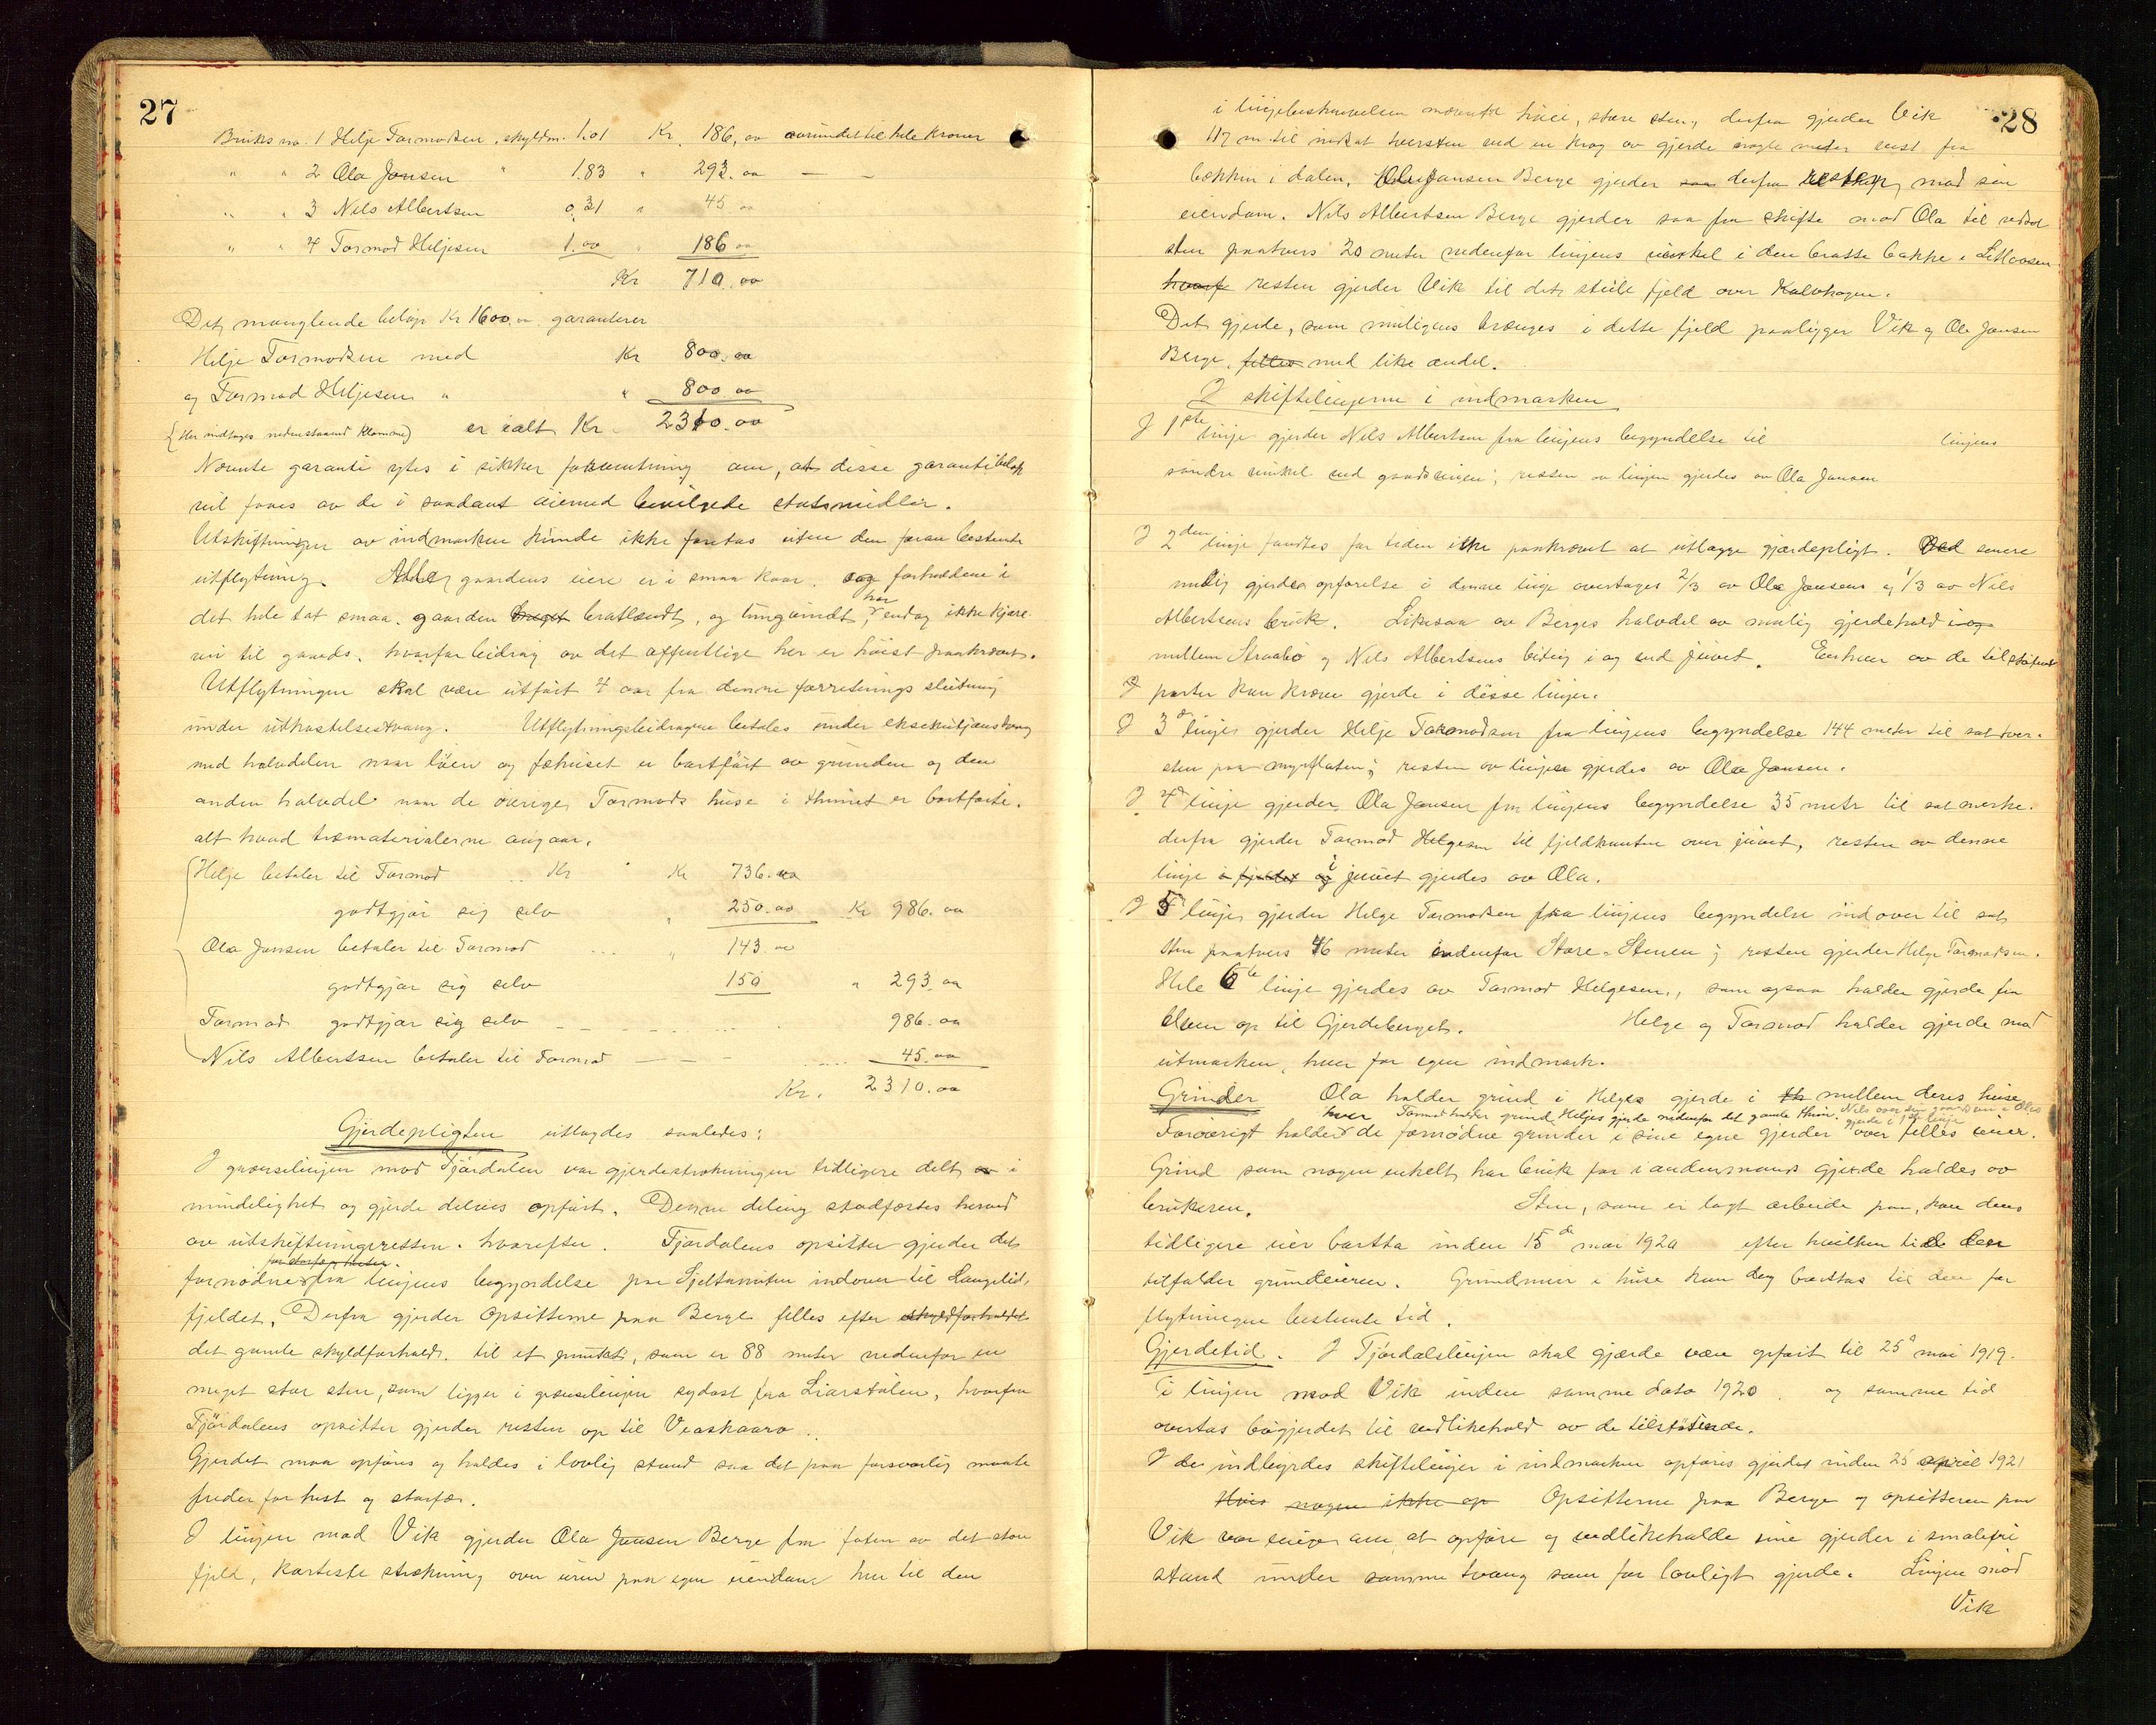 27
Bruks no. 1 Helje Tormodsen, skyldm. 1.01 Kr. 186,00 avrundet til hele kroner
" " 2 Ola Jansen " 1.83 " 293.00 — —
" " 3 Nils Albertsen 0.31 " 45.00
" " 4 Tormod Heljesen 1.00 " 186.00
Kr 710.00
Det manglende beløp Kr 1600.00 garanterer
Helje Tormodsen med Kr 800.00
og Tormod Heljesen " " 800.00
(Her indtages nedenstaaende klamme) er ialt Kr. 2310.00
Nævnte garanti ytes i sikker forventning om, at disse garantibeløp
vil faaes av de i saadant øiemed bevilgede statsmidler.
Utskiftningen av indmarken kunde ikke foretas uten den foran bestemte
utflytning. Alle gaardens eiere er i smaa kaar, og forholdene i
det hele tat smaa. gaarden bratlændt, og tungvindt, har endog ikke kjøre-
vei til gaards, hvorfor bidrag av det offentlige her er høist paakrævet.
Utflytningen skal være utført 4 aar fra denne forretnings slutning
under utkastelsestvang. Utflytningsbidragene betales under eksekutjonstvang
med halvdelen naar løen og fæhuset er bortført av grunden og den
anden halvdel naar de øvrige Tormods huse i thunet er bortførte,
alt hvad træmaterialerne angaar.
Helje betaler til Tormod .. Kr " Kr 736.00
godtgjør sig selv " 250.00 Kr 986.00
Ola Jansen betaler til Tormod ... " 143.00
godtgjør sig selv 150 " 293.00
Tormod godtgjør sig selv 986.00
Nils Albertsen betaler til Tormod — — — 45.00
Kr. 2310.00
Gjerdepligten utlagdes saaledes:
I grænselinjen mod Fjørdalen var gjerdestrækningen tidligere delt i
mindelighet og gjerde delvis opført. Denne deling stadfæstes herved
av utskiftningsretten, hvorefter. Fjørdalens opsitter gjerder det
for storfæ og hester.
fornødne fra linjens begyndelse paa Sjeltanuten indover til Langelid,
fjeldet. Derfra gjerder Opsitterne paa Berge felles efter skyldforholdet
det gamle skyldforhold. til et punkt, som er 88 meter nedenfor en
meget stor sten, som ligger i grænselinjen sydost fra Liarstølen, hvorfra
Fjørdalens opsitter gjerder resten op til Vraskaaro..
Gjerdet maa opføres og holdes i lovlig stand saa det paa forsvarlig maate
freder for hest og storfæ.
I linjen mod Vik gjerder Ola Jansen Berge fra foten av det store
fjeld, korteste strækning over uren paa egen eiendom her til den
28
i linjebeskrivelsen nævnte høie, store sten, derfra gjerder Vik
117 m. til nedsat tversten ved en krog av gjerde nogle meter vest fra
bækken i dalen. Ola Jansen Berge gjerder saa derfra resten mod sin
eiendom. Nils Albertsen Berge gjerder saa fra skifte mod Ola til nedsat
sten paatvers 20 meter nedenfor linjens vinkel i den bratte bakke i
resten gjerder Vik til det steile fjeld over Kalvhagen.
Det gjerde, som muligens trænges i dette fjeld paaligger Vik og Ola Jansen
Berge. felles med like andel.
I skiftelinjerne i indmarken
I 1ste linje gjerder Nils Albertsen fra linjens begyndelse til linjens
søndre vinkel ved gaardsveien; resten av linjen gjerdes av Ola Jansen
I 2den linje fandtes for tiden ikke paakrævet at utlægge gjærdepligt. Ved senere
mulig gjerdes opførelse i denne linje overtages 2/3 av Ola Jansens og 1/3 av Nils
Albertsens bruk. Likesaa av Berges halvdel av mulig gjerdehold i og
mellem Straabø og Nils Albertsens biting i og ved juvet. Enhver av de tilstøtende
parter kan kræve gjerde i disse linjer.
I 3d linje gjerder Helje Tormodsen fra linjens begyndelse 144 meter til sat tver-
sten paa myrflaten; resten av linjen gjerdes av Ola Jansen.
I 4d linje gjerder Ola Jansen fra linjens begyndelse 35 meter til sat merke.
derfra gjerder Tormod Helgesen til fjeldkanten over juvet, resten av denne
linje i fjeldet og i juvet gjerdes av Ola.
I 5 linje gjerder Helge Tormodsen fra linjens begyndelse indover til sat
sten paatvers 46 meter indenfor Store-Stenen; resten gjerder Helge Tormodsen.
Hele 6te linje gjerdes av Tormod Helgesen, som ogsaa holder gjerde fra
Elven op til Gjerdeberget. Helge og Tormod holder gjerde mod
utmarken, hver for egen indmark.
Grinder Ola holder grind i Helges gjerde i mellem deres huse,
hver Tormod holder grind Heljes gjerde nedenfor det gamle thun. Nils over sin gaardsvei i Olas
gjerde i 1ste linje
Forøvrigt holder de fornødne grinder i sine egne gjerder over felles veier.
Grind som nogen enkelt har bruk for i andenmands gjerde holdes av
brukeren. Sten, som er lagt arbeide paa, kan dens
tidligere eier bortta inden 15de mai 1920 efter hvilken tid den
tilfalder grundeieren. Grundmur i huse kan dog borttas til den for
flytningen bestemte tid.
Gjerdetid. I Fjørdalslinjen skal gjærde være opført til 25d mai 1919.
I linjen mod Vik inden samme dato 1920. og samme tid
overtas bøgjerdet til vedlikehold av de tilstøtende.
I de indbyrdes skiftelinjer i indmarken opføres gjerdet inden 25 april 1921
Hvis nogen ikke op Opsitterne paa Berge og opsitteren paa
Vik var enige om at opføre og vedlikeholde sine gjerder i smalefri
stand under samme tvang som for lovligt gjerde. Linjen mod
Vik